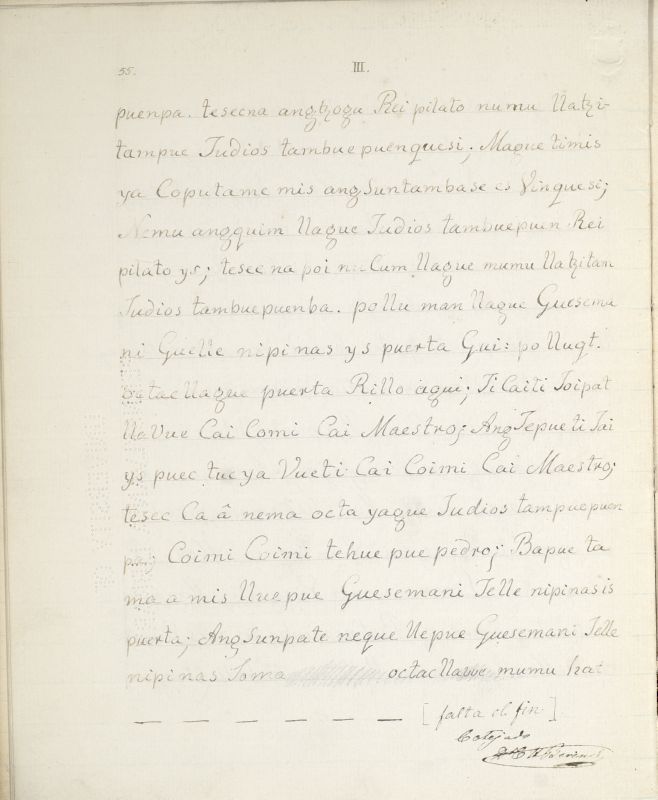 55.
III.
puenpa. tesecna angtzogu Rei pilato numu Natzi-
tampue Judios tambue puenquesi; Maque timis
ya Coputame mis angSuntambase es Vinquesi;
Nemu angquim Nague Judios tambuepuen Rei
pilato ys; tesec na poi Cum Nague mumu Natzitam
Judios tambuepuenba. po Nu man Nague Guesema
ni Guelle nipinas ys puerta Gui: po Nuqt.
octac Nague puerta Rillo aqui; Ti Caiti Toipat
Na Vue Cai Comi Cai Maestro; Ang Tepue ti Tai
ys puec tuc ya Vueti Cai Coimi Cai Maestro;
tesec Ca â nema octa yaque Judios tampuepuen
Coimi Coimi tehue pue pedro; Bapue ta
ma a mis Nue pue Guesemani Telle nipinas is
puerta; Ang Sunpate neque Nepue Guesemani Telle
nipinas Soma octac Navue mumu hat
— — — — — — [falta el fin.]
Cotejado